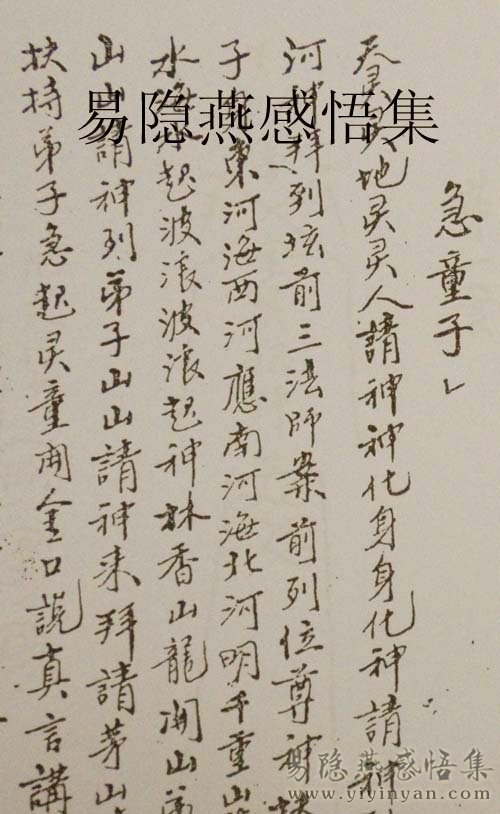 急童子
灵地灵灵人請神神化身身化神請神
河神拜列坛前三法師案前列位尊神
子東河海西河應南河海北河明千重山
水海起波浪波浪起神林香山龍開山
山山請神列弟子山山請神来拜請茅山
扶持弟子急起灵童開金口說真言講
易隐燕感悟集
易隐燕感悟集
www.yiyinyan.com